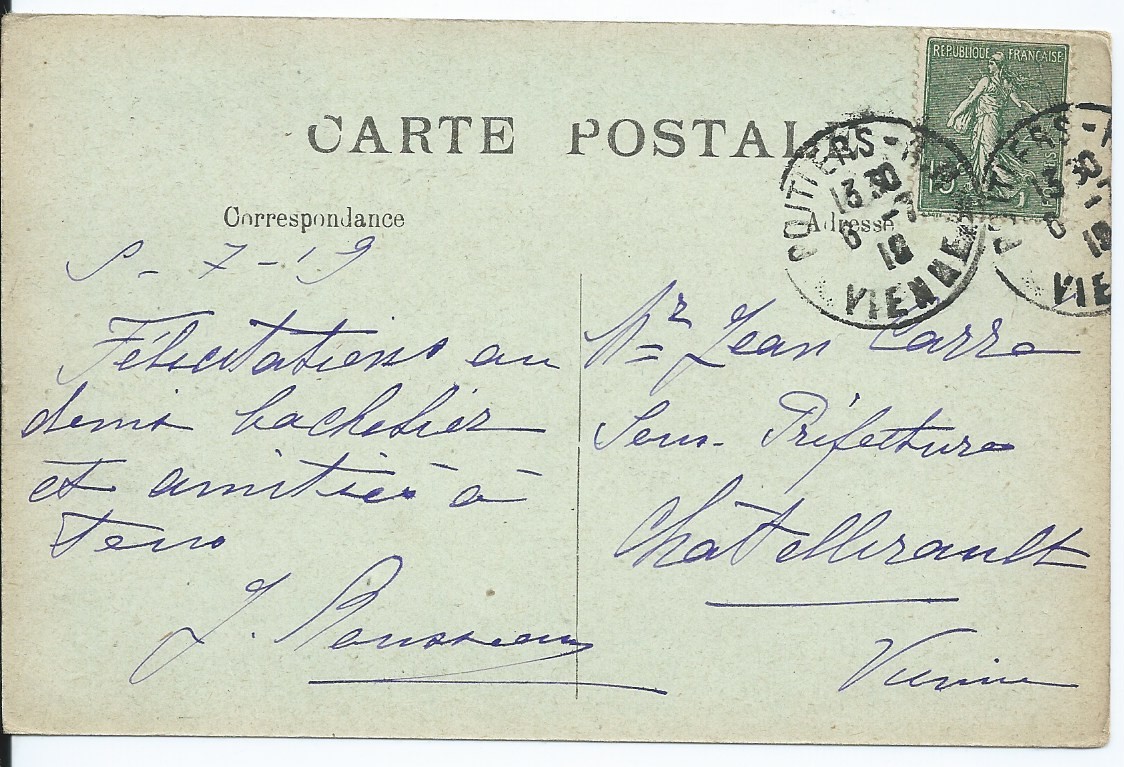 CARTE POSTALE
REPUBLIQUE FRANÇAISE
15
POITIERS - 
13 30
6 - 7
19
VIENNE
Correspondance
Adresse
- 7 - 19
Félicitations au
demi bachelier
et amitiés à
tous
J. Rousseau
Mr Jean Carre
Sous-Préfecture
Châtellerault
Vienne